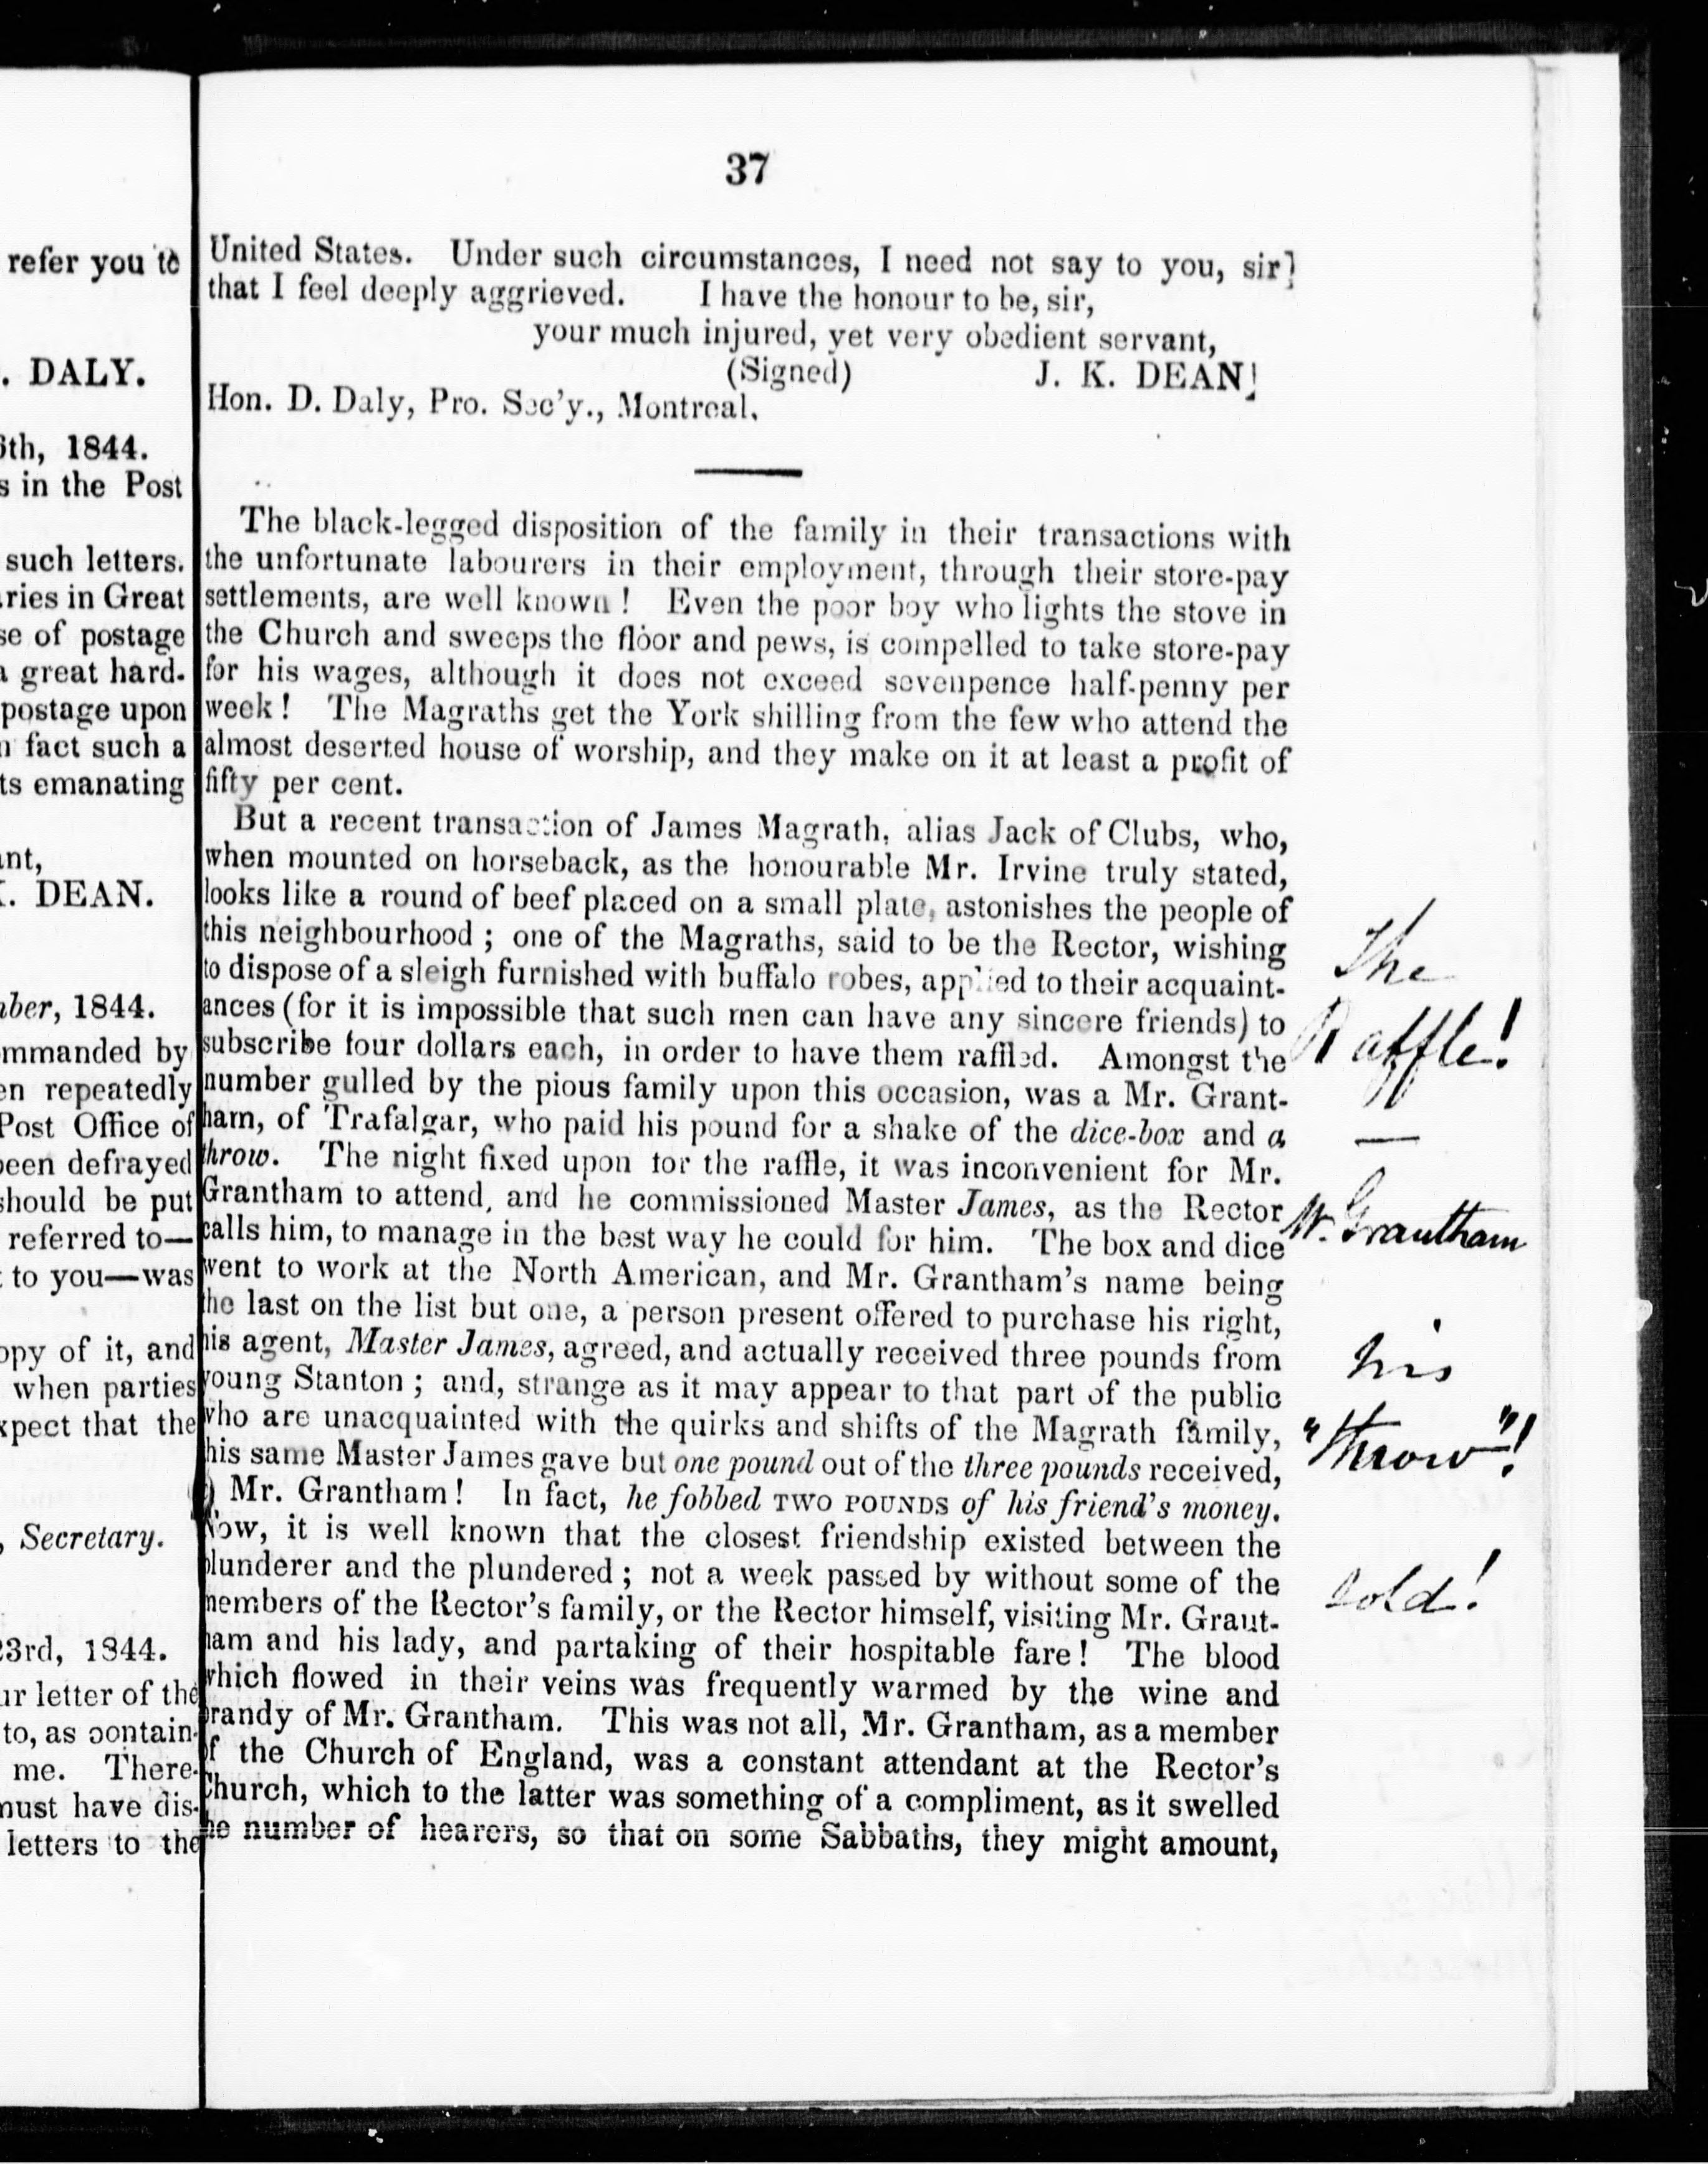 refer you to
. DALY.
6th, 1844.
s in the Post
such letters.
ries in Great
se of postage
a great hard-
postage upon
n fact such a
ts emanating
nt,
K. DEAN.
ber, 1844.
mmanded by
en repeatedly
Post Office of
been defrayed
should be put
referred to—
t to you—was
opy of it, and
when parties
xpect that the
, Secretary.
23rd, 1844.
ur letter of the
to, as contain-
me. There-
must have dis-
letters to the
37
United States. Under such circumstances, I need not say to you, sir,
that I feel deeply aggrieved. I have the honour to be, sir,
your much injured, yet very obedient servant,
(Signed) J. K. DEAN.
Hon. D. Daly, Pro. Sec'y., Montreal.
The black-legged disposition of the family in their transactions with
the unfortunate labourers in their employment, through their store-pay
settlements, are well known! Even the poor boy who lights the stove in
the Church and sweeps the floor and pews, is compelled to take store-pay
for his wages, although it does not exceed sevenpence half-penny per
week! The Magraths get the York shilling from the few who attend the
almost deserted house of worship, and they make on it at least a profit of
fifty per cent.
But a recent transaction of James Magrath, alias Jack of Clubs, who,
when mounted on horseback, as the honourable Mr. Irvine truly stated,
looks like a round of beef placed on a small plate, astonishes the people of
this neighbourhood; one of the Magraths, said to be the Rector, wishing
to dispose of a sleigh furnished with buffalo robes, applied to their acquaint-
ances (for it is impossible that such men can have any sincere friends) to
subscribe four dollars each, in order to have them raffled. Amongst the
number gulled by the pious family upon this occasion, was a Mr. Grant-
ham, of Trafalgar, who paid his pound for a shake of the dice-box and a
throw. The night fixed upon for the raffle, it was inconvenient for Mr.
Grantham to attend, and he commissioned Master James, as the Rector
calls him, to manage in the best way he could for him. The box and dice
went to work at the North American, and Mr. Grantham's name being
the last on the list but one, a person present offered to purchase his right,
his agent, Master James, agreed, and actually received three pounds from
young Stanton; and, strange as it may appear to that part of the public
who are unacquainted with the quirks and shifts of the Magrath family,
this same Master James gave but one pound out of the three pounds received,
to Mr. Grantham! In fact, he fobbed TWO POUNDS of his friend's money.
Now, it is well known that the closest friendship existed between the
plunderer and the plundered; not a week passed by without some of the
members of the Rector's family, or the Rector himself, visiting Mr. Grant-
ham and his lady, and partaking of their hospitable fare! The blood
which flowed in their veins was frequently warmed by the wine and
brandy of Mr. Grantham. This was not all, Mr. Grantham, as a member
of the Church of England, was a constant attendant at the Rector's
Church, which to the latter was something of a compliment, as it swelled
the number of hearers, so that on some Sabbaths, they might amount,
The
Raffle!
—
Mr. Grantham
his
"throw"!
sold!